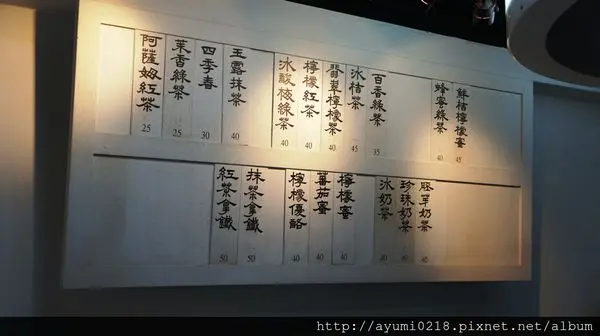 阿薩姆紅茶 25
茉香綠茶 25
四季春 30
玉露抹茶 40
冰酸梅綠茶 40
檸檬紅茶 40
翡翠檸檬茶 40
冰桔茶 45
百香綠茶 35
蜂蜜綠茶 40
鮮桔檸檬蜜 45
紅茶拿鐵 50
抹茶拿鐵 50
檸檬優酪 40
蕃茄蜜 40
檸檬蜜 40
冰奶茶 40
珍珠奶茶 40
胚芽奶茶 40
http://ayumi0218.pixnet.net/album